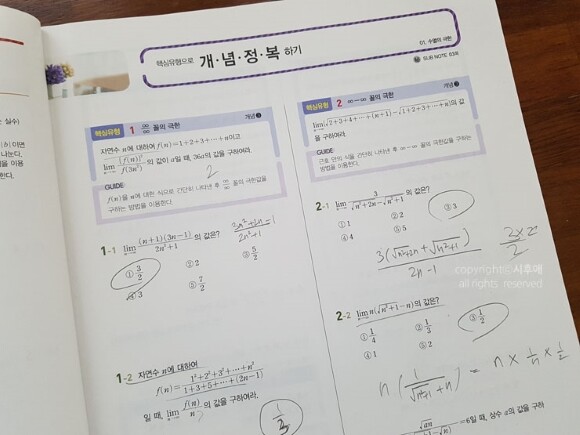 핵심유형으로 개·념·정·복 하기
01 수열의 극한
SUB NOTE 03쪽
핵심유형 1 ∞/∞ 꼴의 극한 개념 ❸
자연수 n에 대하여 f(n)=1+2+3+⋯+n이고
의 값이 a일 때, 36a의 값을 구하여라.
2
GUIDE
f(n)을 n에 대한 식으로 간단히 나타낸 후 ∞/∞ 꼴의 극한값을
구하는 방법을 이용한다.
1-1 lim (n+1)(3n-1)/2n²+1 의 값은?
① 3/2 ② 2 ③ 5/2
④ 3 ⑤ 7/2
1-2 자연수 n에 대하여
f(n)= 1²+2²+3²+⋯+n²/1+3+5+⋯+(2n-1)
일 때, lim f(n)/n 의 값을 구하여라.
1/3
핵심유형 2 ∞-∞ 꼴의 극한 개념 ❸
구하여라.
GUIDE
근호 안의 식을 간단히 나타낸 후 ∞-∞ 꼴의 극한값을 구하는
방법을 이용한다.
2-1 lim 3/√n²+2n-√n²+1 의 값은?
① 1 ② 2 ③ 3
④ 4 ⑤ 5
3(√n²+2n+√n²+1)
2n-1
copyright© 시후에
all rights reserved
2-2 lim n(√n²+1-n)의 값은?
① 1/4 ② 1/3 ③ 1/2
④ 1 ⑤ 2
n(1/√n²+1+n) = n×1/n×1/2
=6일 때, 상수 a의 값을 구하